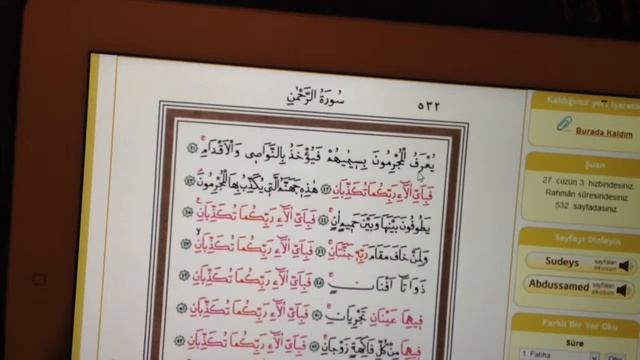 سورة الرحمن
٥٣٢
يعرف المجرمون بسيميهم فيؤخذ بالنواصى والاقدام ٤١
فباى الاء ربكما تكذبان ٤٢ هذه جهنم التى يكذب بها المجرمون ٤٣
يطوفون بينها وبين حميم ان ٤٤ فباى الاء ربكما تكذبان ٤٥
ولمن خاف مقام ربه جنتان ٤٦ فباى الاء ربكما تكذبان ٤٧
ذواتا افنان ٤٨ فباى الاء ربكما تكذبان ٤٩
فيهما عينان تجريان ٥٠ فباى الاء ربكما تكذبان ٥١
فيهما من كل فاكهة زوجان ٥٢ فباى الاء ربكما تكذبان ٥٣
Kaldığınız yeri
Burada Kaldım
Şuan
27. cüzün 3. hizbindesiniz.
Rahmân sûresindesiniz.
532. sayfadasınız.
Sayfayı Dinleyin
Sudeys sayfaları okusun
Abdussamed sayfaları okusun
Farklı Bir Yer Oku
sûre
1. Fatiha